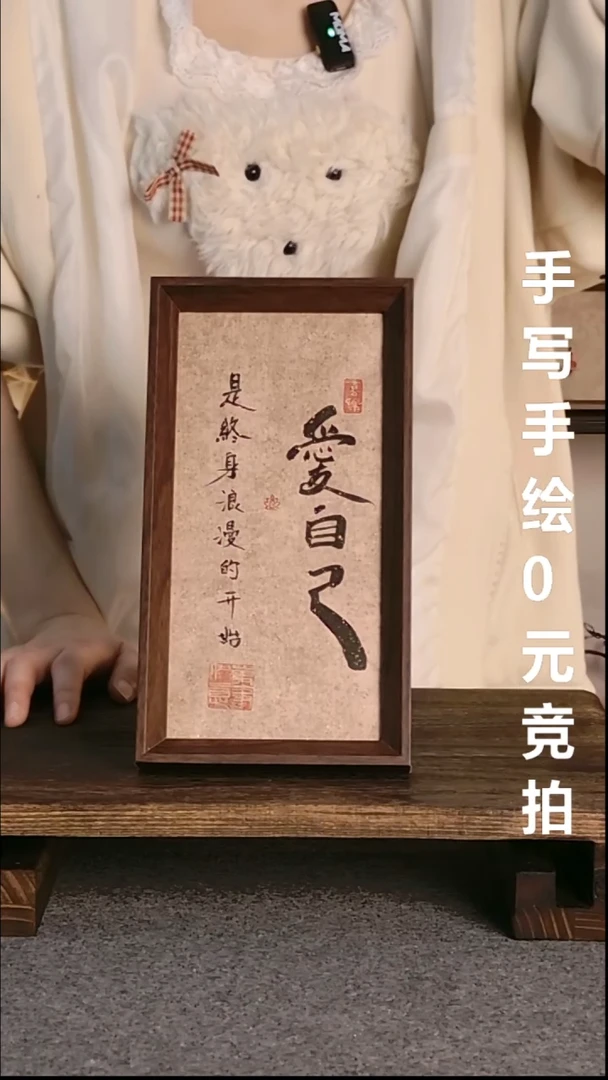 愛自己
是終身浪漫的开始
手写手绘0元竞拍